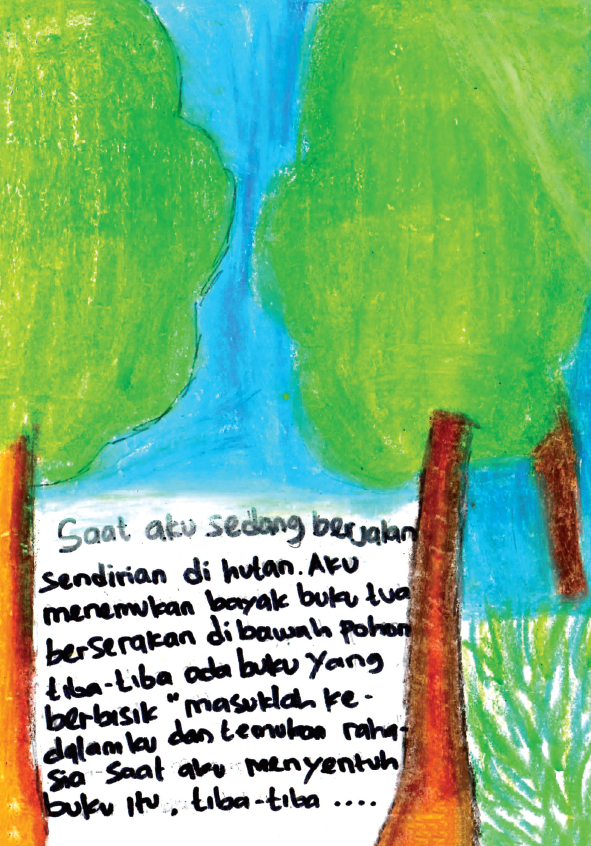 Saat aku sedang berjalan
sendirian di hutan. Aku
menemukan bayak buku tua
berserakan dibawah pohon
tiba-tiba ada buku yang
berbisik "masuklah ke-
dalamku dan temukan raha-
sia saat aku menyentuh
buku itu, tiba-tiba ....